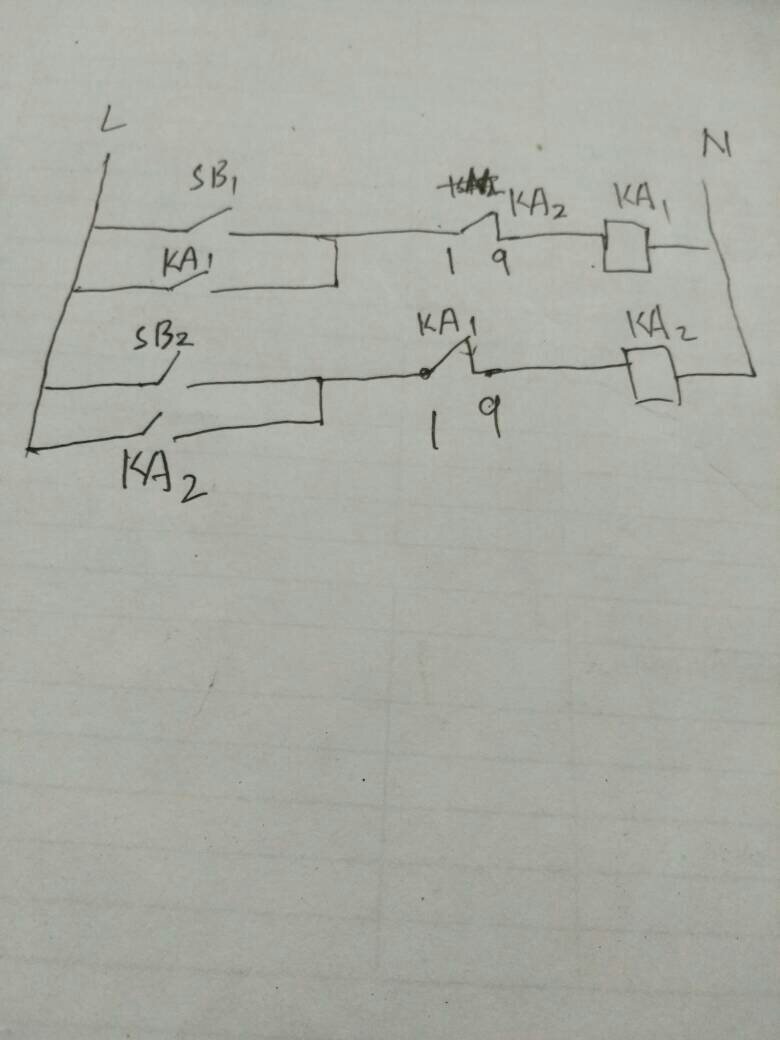 L
N
SB1
KA2
KA1
KA1
1 9
SB2
KA1
KA2
1 9
KA2